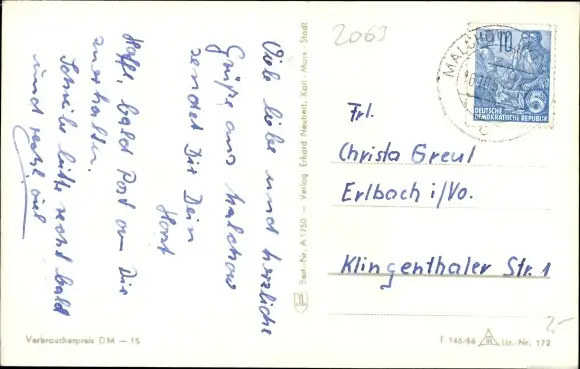 Viele liebe und herzliche
Grüße aus Malchow
sendet Dir Dein
Horst
Hoffe, bald Post von Dir
zu erhalten.
Schreibe bitte recht bald
und recht viel
Best.-Nr. A 1/50 — Verlag Erhard Neubert, Karl-Marx-Stadt
2063
MALCHOW
10
DEUTSCHE
DEMOKRATISCHE REPUBLIK
Frl.
Christa Greul
Erlbach i/Vo.
Klingenthaler Str. 1
2,-
Verbraucherpreis DM —.15
T 146/56 Liz.-Nr. 172